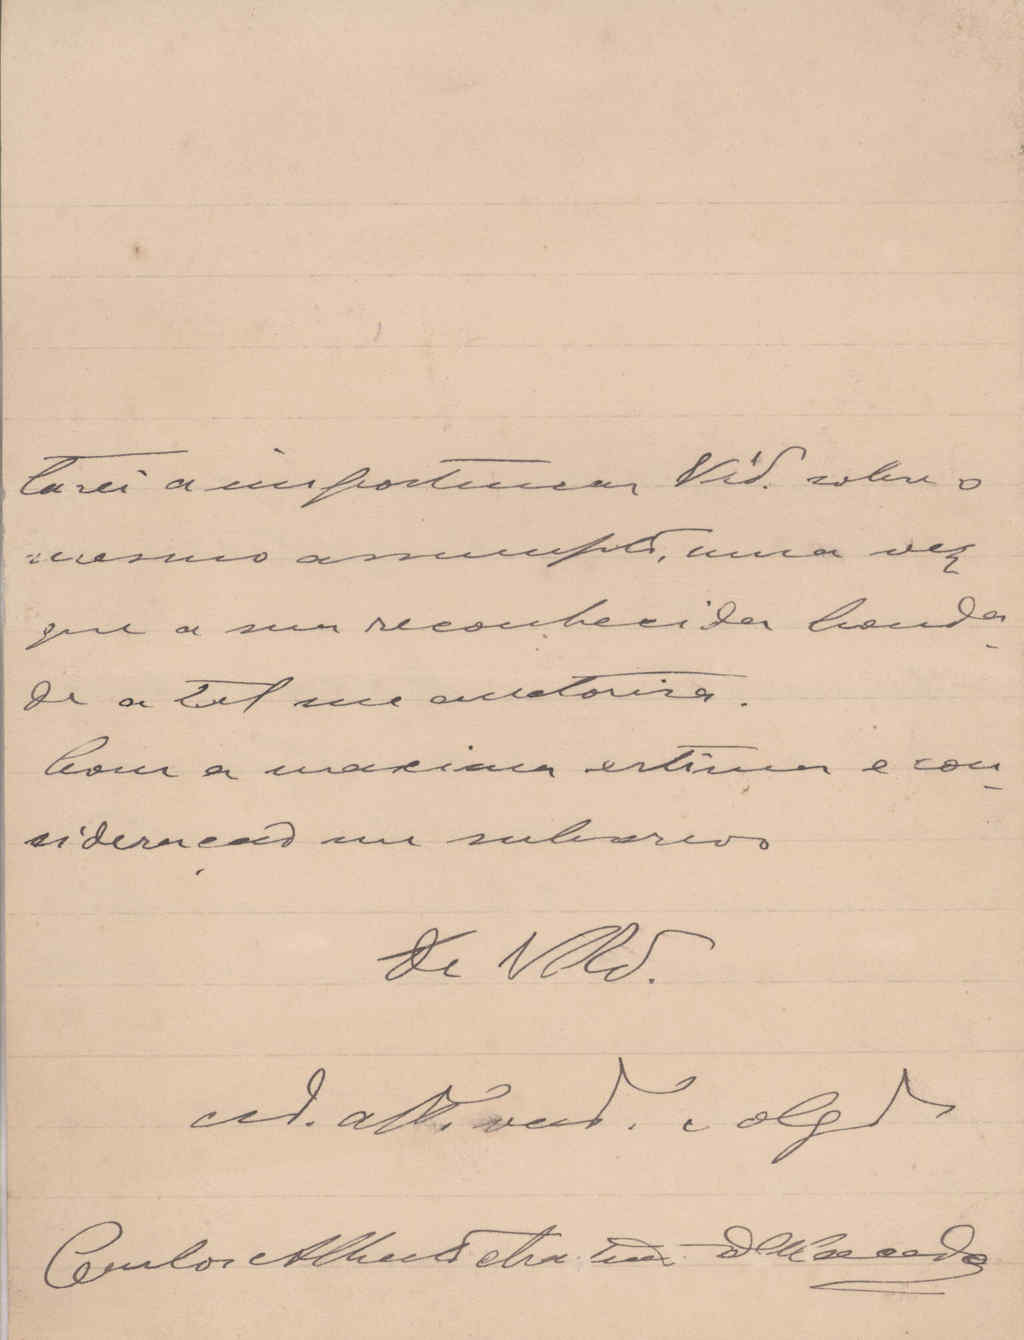 tarei a importunar V.S.ª sobre o
mesmo assumpto, uma vez
que a sua reconhecida bonda-
de a tal me autorisa.
Com a maxima estima e con-
sideração me subscrevo
De V.
cd. att. vend. e obgd
Carlos Alberto